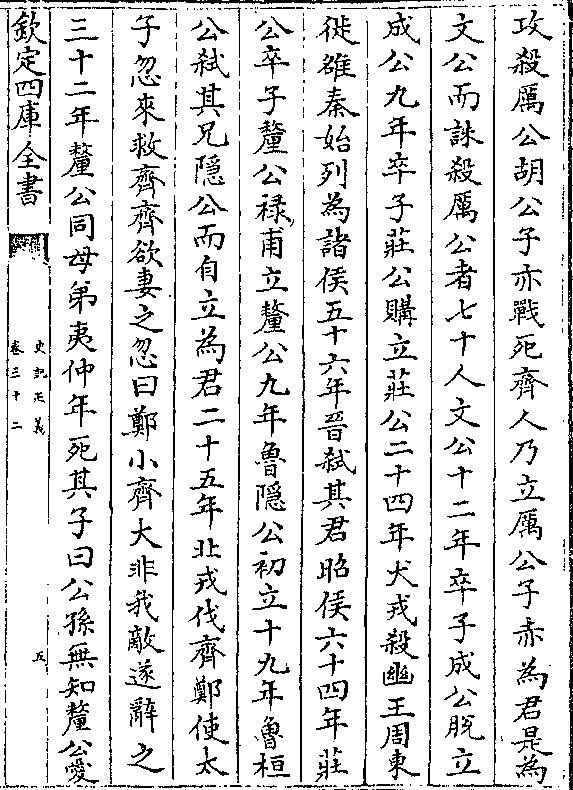 攻殺厲公胡公子亦戰死齊人乃立厲公子赤為君是為
文公而誅殺厲公者七十人文公十二年卒子成公脫立
成公九年卒子莊公購立莊公二十四年犬戎殺幽王周東
徙雒秦始列為諸侯五十六年晉弑其君昭侯六十四年莊
公卒子釐公祿甫立釐公九年魯隱公初立十九年魯桓
公弑其兄隱公而自立為君二十五年北戎伐齊鄭使太
子忽來救齊齊欲妻之忽曰鄭小齊大非我敵遂辭之
三十二年釐公同母弟夷仲年死其子曰公孫無知釐公愛
欽定四庫全書
史記正義
卷三十二
五